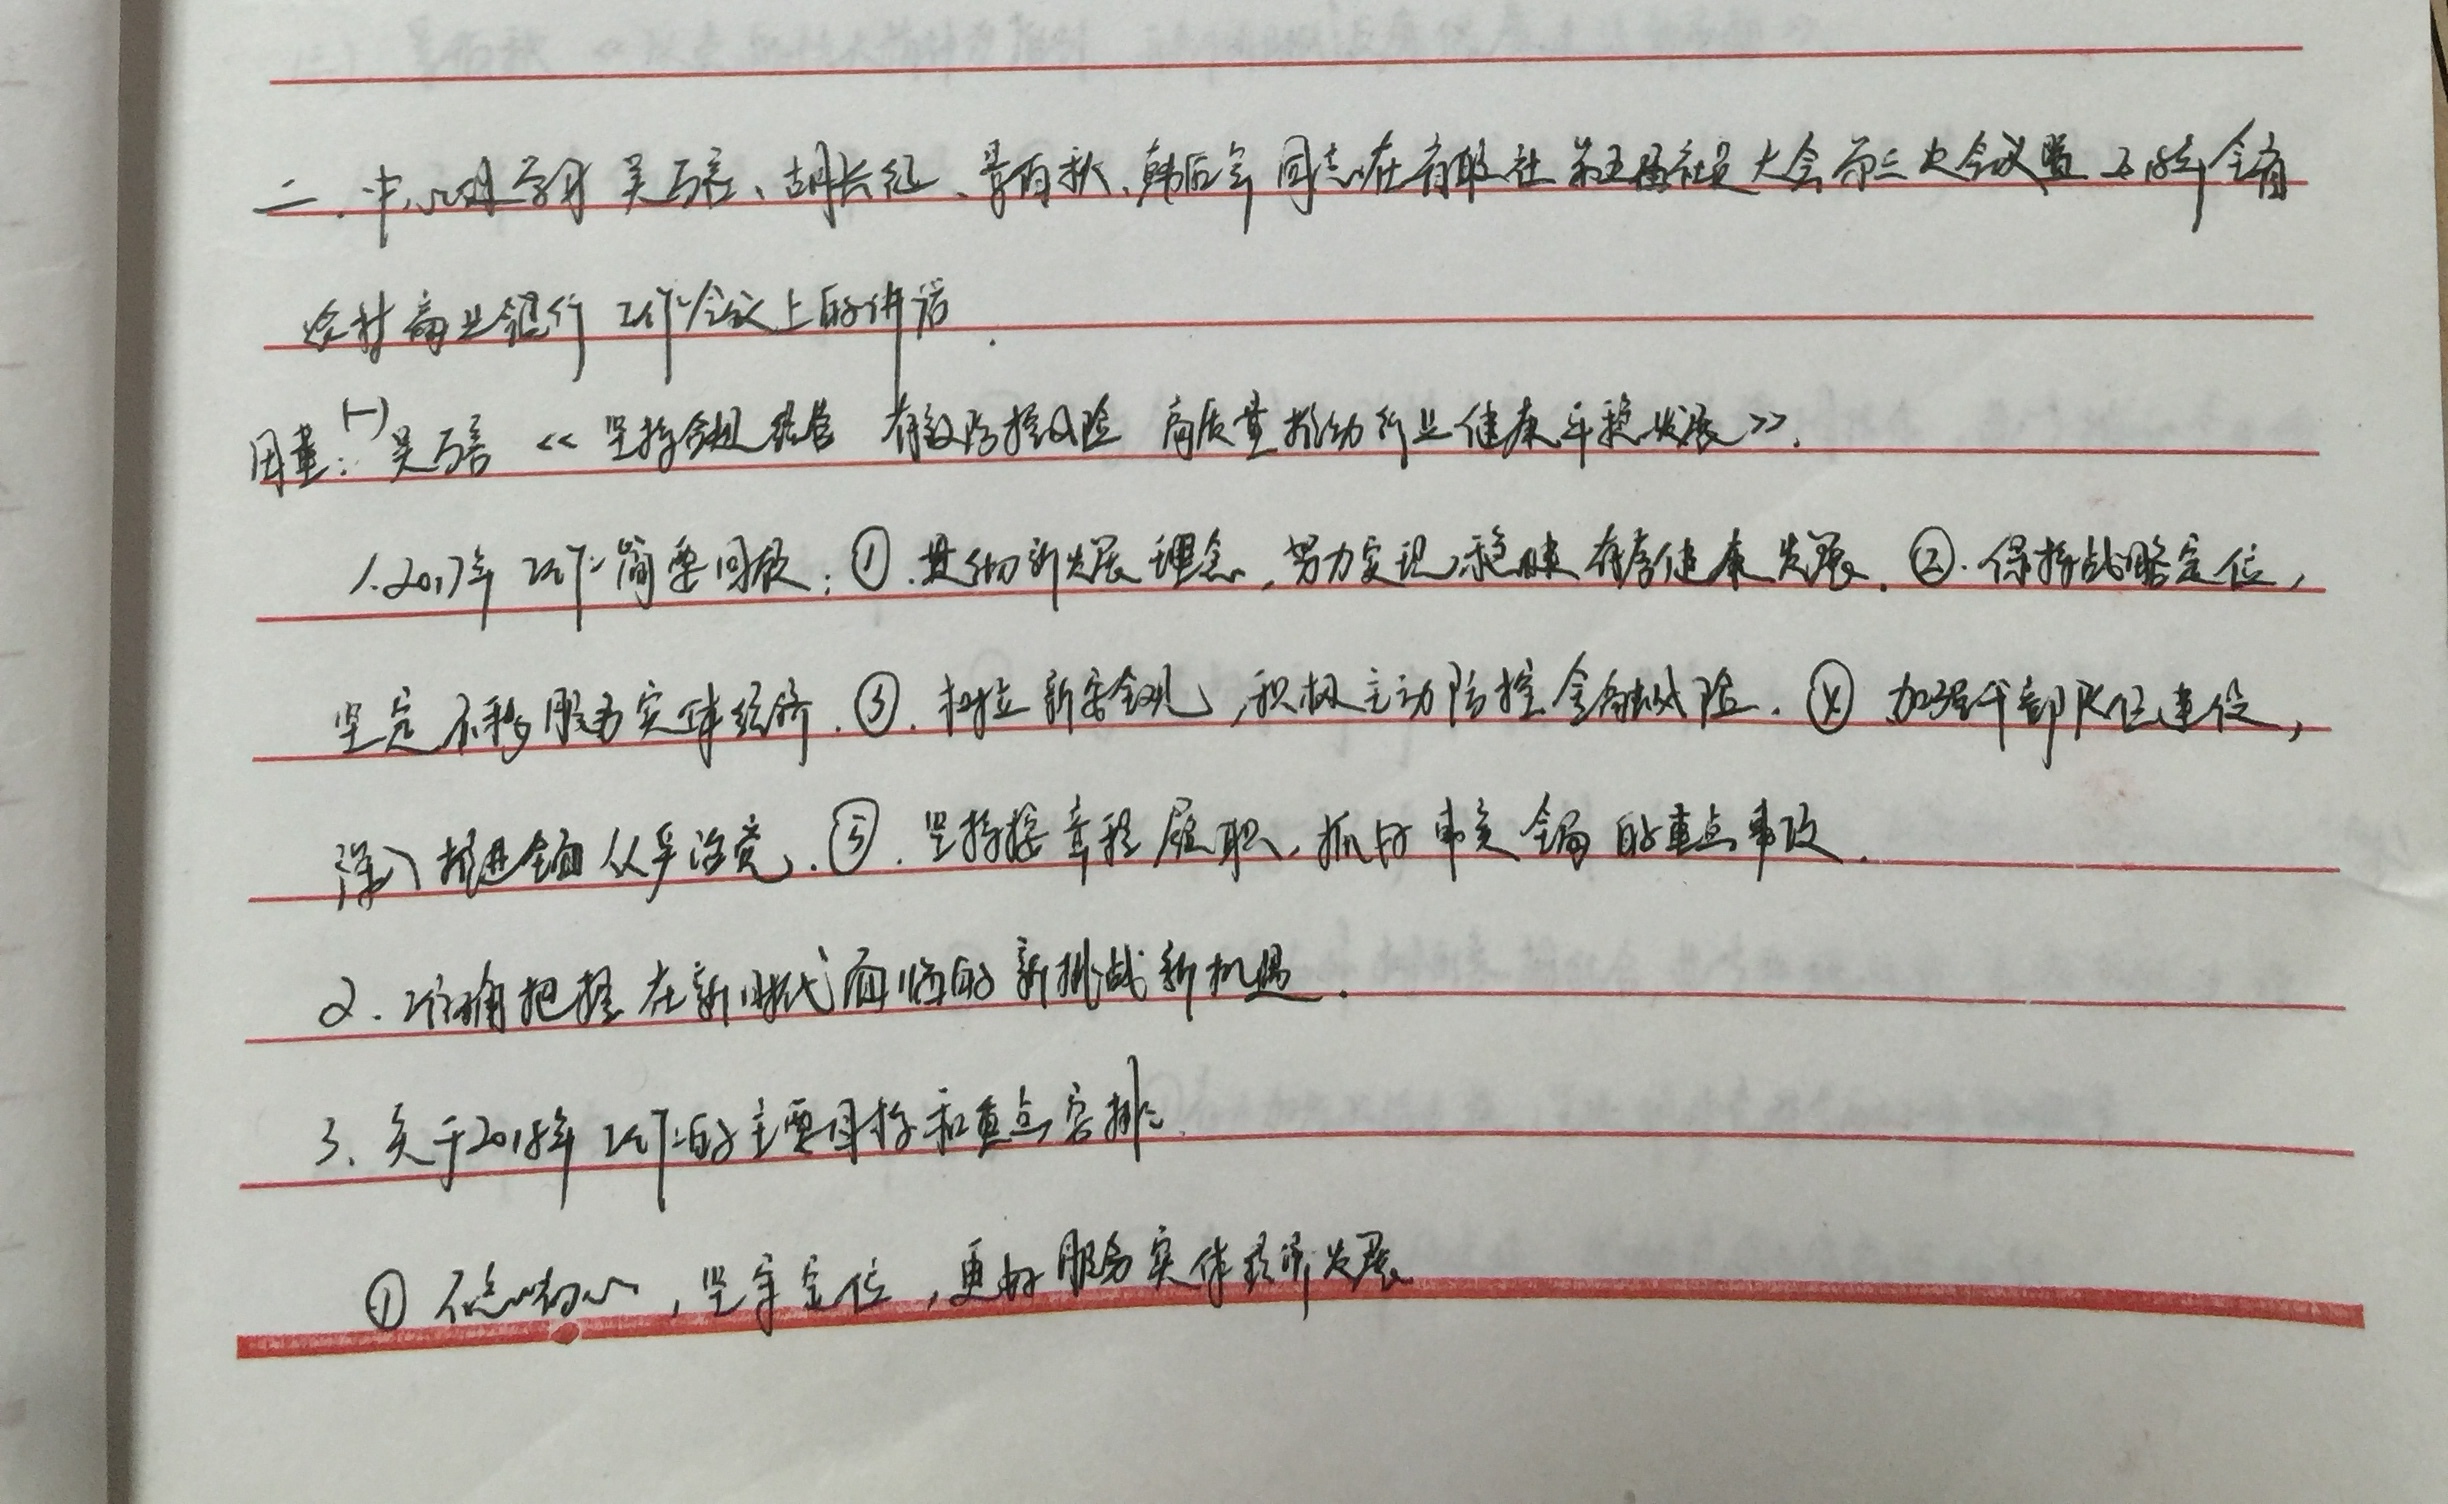 二.中心组学习吴万善、胡长征、景百秋、韩后军同志在省联社第五届社员大会第三次会议暨2018年全省
农村商业银行工作会议上的讲话.
(一)吴万善《坚持合规经营 有效防控风险 高质量推动行业健康平稳发展》.
1.2017年工作简要回顾:①.贯彻新发展理念,努力实现稳健有序健康发展.②.保持战略定位,
坚定不移服务实体经济.③.树立新安全观,积极主动防控金融风险.④加强干部队伍建设,
深入推进全面从严治党.⑤.坚持按章程履职,抓好事关全局的重点事项.
2.准确把握在新时代面临的新挑战新机遇.
3、关于2018年工作的主要目标和重点安排.
①不忘初心,坚守定位,更好服务实体经济发展